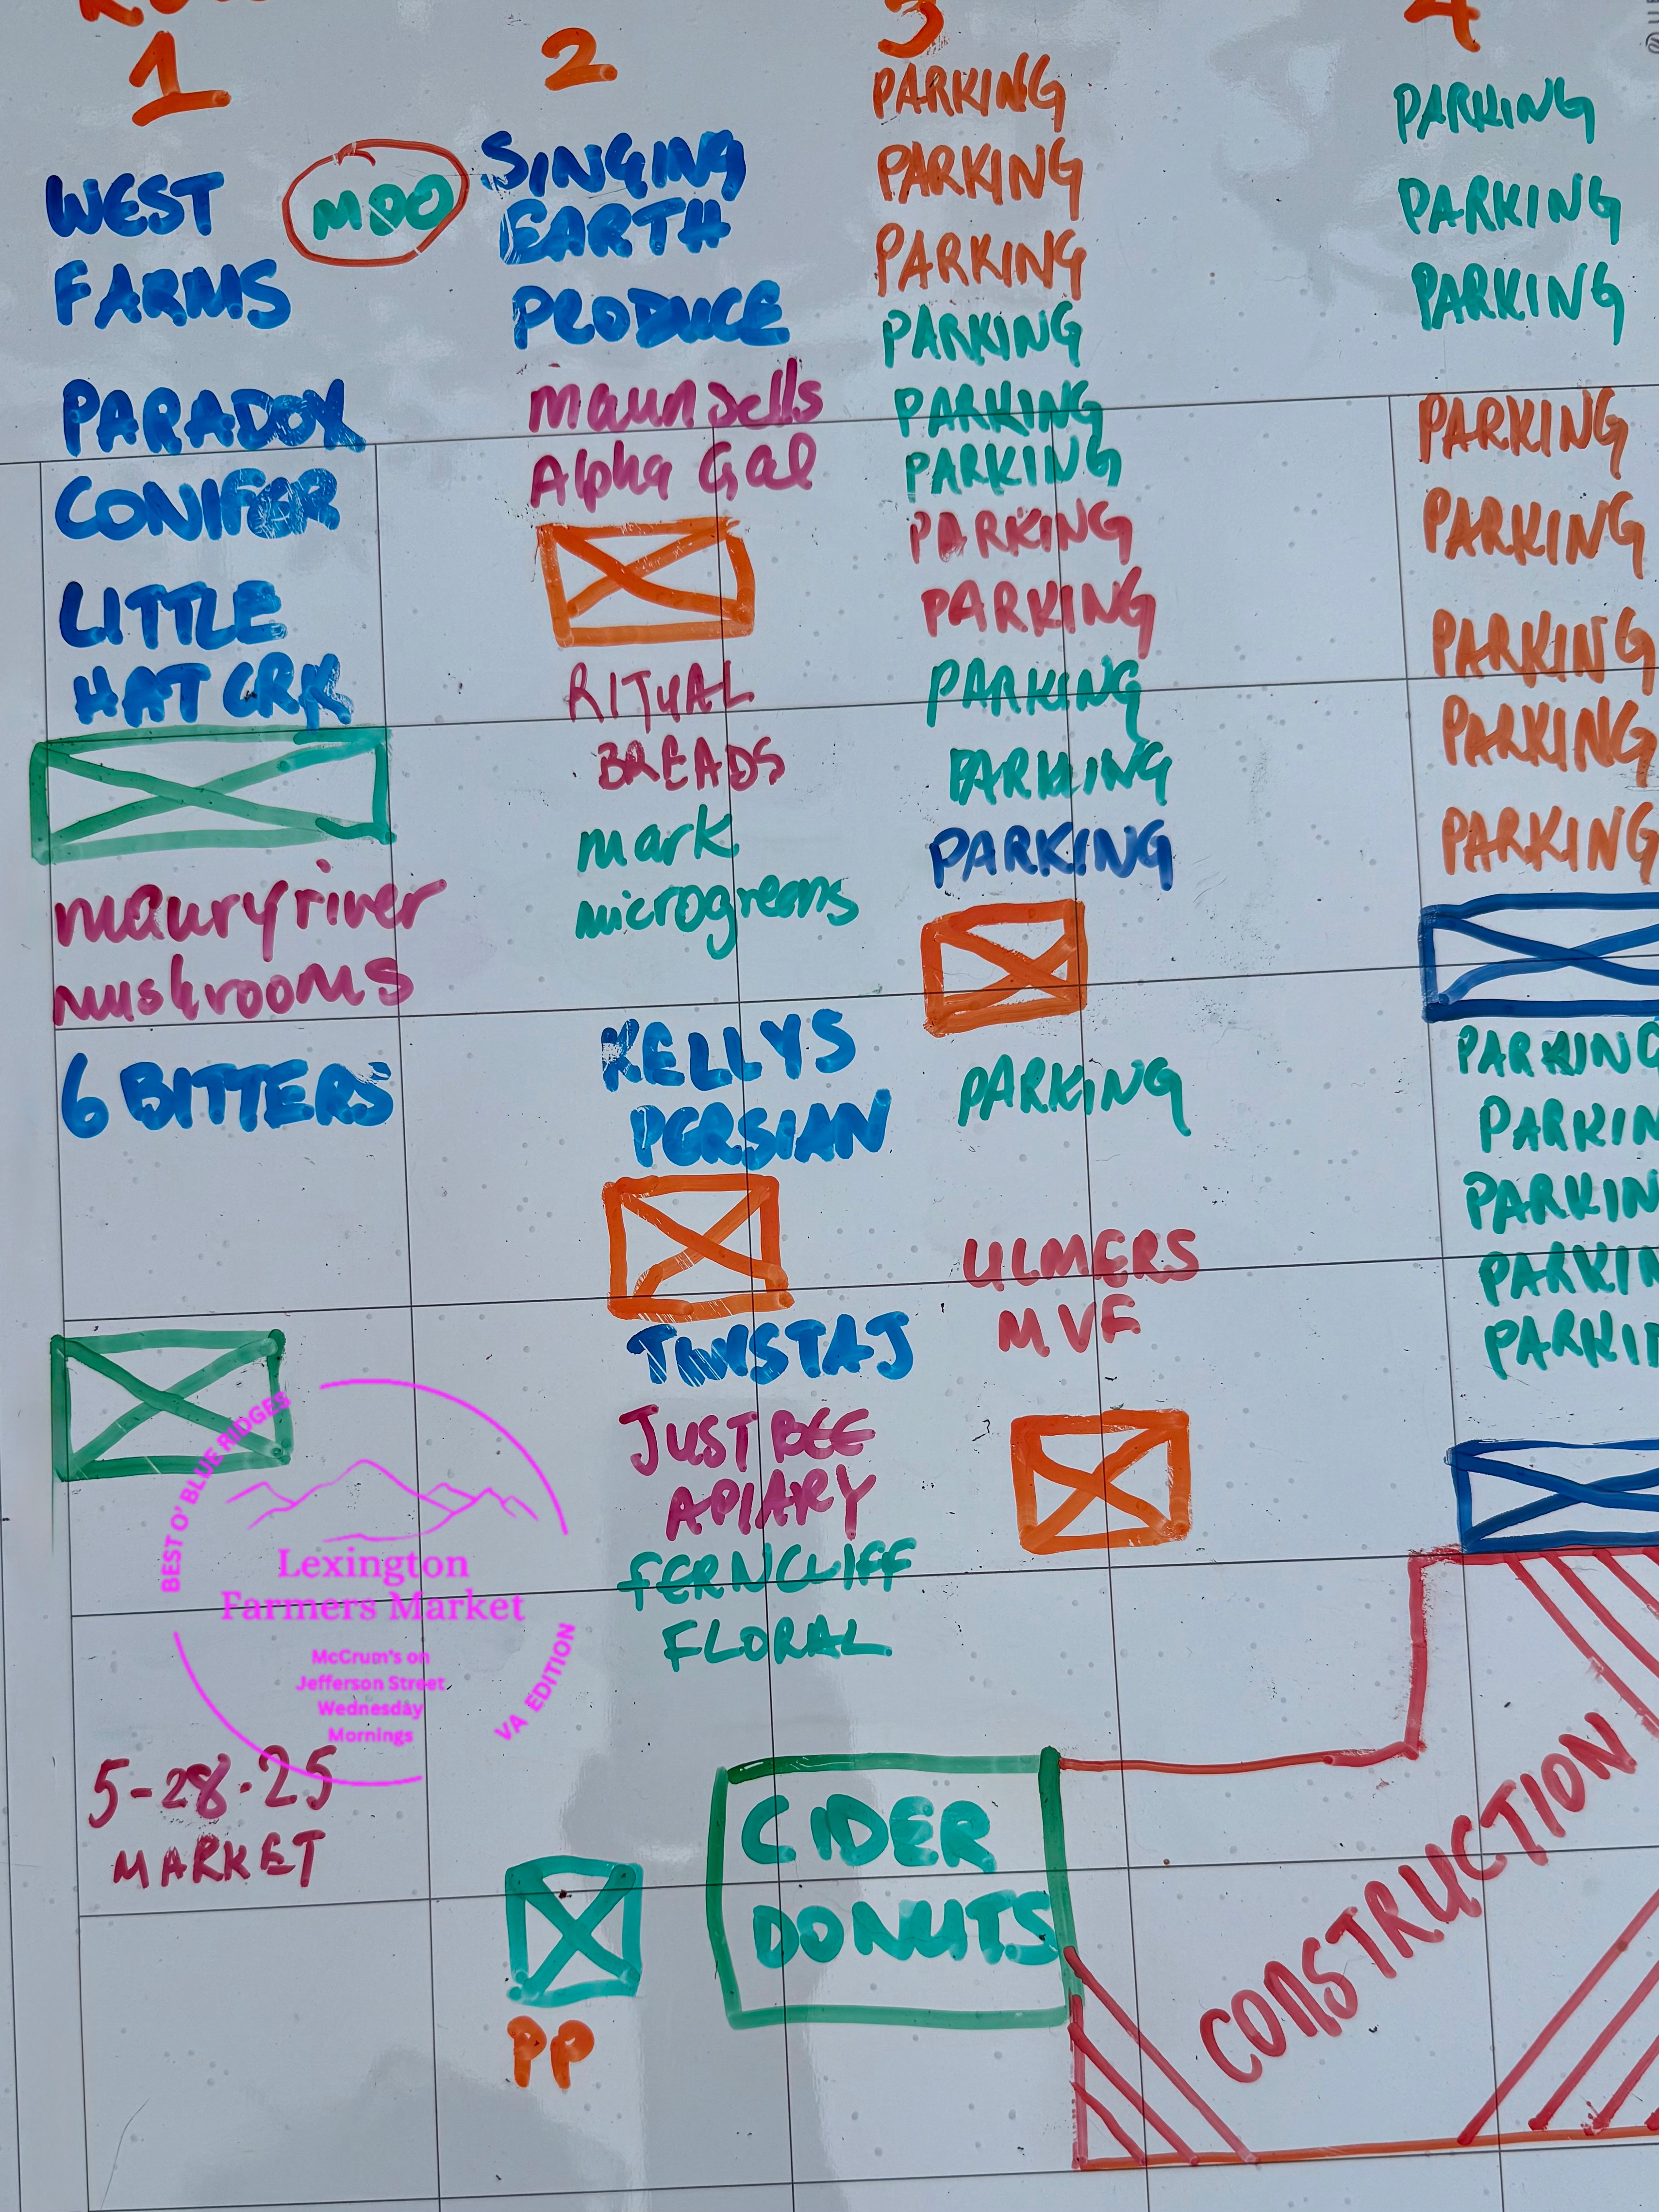 1
WEST
FARMS
MDO
PARADOX
CONIFER
LITTLE
HAT CRK
mauryriver
mushrooms
6 BITTERS
2
SINGING
EARTH
PRODUCE
maunsells
Alpha Gal
RITUAL
BREADS
mark
microgreens
KELLYS
PERSIAN
TWISTAJ
JUST BEE
APIARY
FERNCLIFF
FLORAL
3
PARKING
PARKING
PARKING
PARKING
PARKING
PARKING
PARKING
PARKING
PARKING
PARKING
PARKING
PARKING
ULMERS
MVF
4
PARKING
PARKING
PARKING
PARKING
PARKING
PARKING
PARKING
PARKING
PARKING
PARKIN
PARKIN
PARKIN
PARKI
BEST O' BLUE RIDGES
Lexington
Farmers Market
McCrum's on
Jefferson Street
Wednesday
Mornings
VA EDITION
5-28-25
MARKET
CIDER
DONUTS
PP
CONSTRUCTION